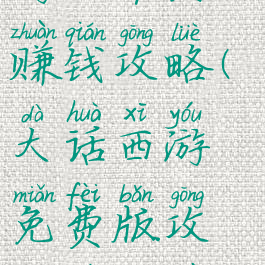 zhuàn qián gōng lüè
赚钱攻略(
dà huà xī yóu
大话西游
miǎn fèi bǎn gōng
免费版攻